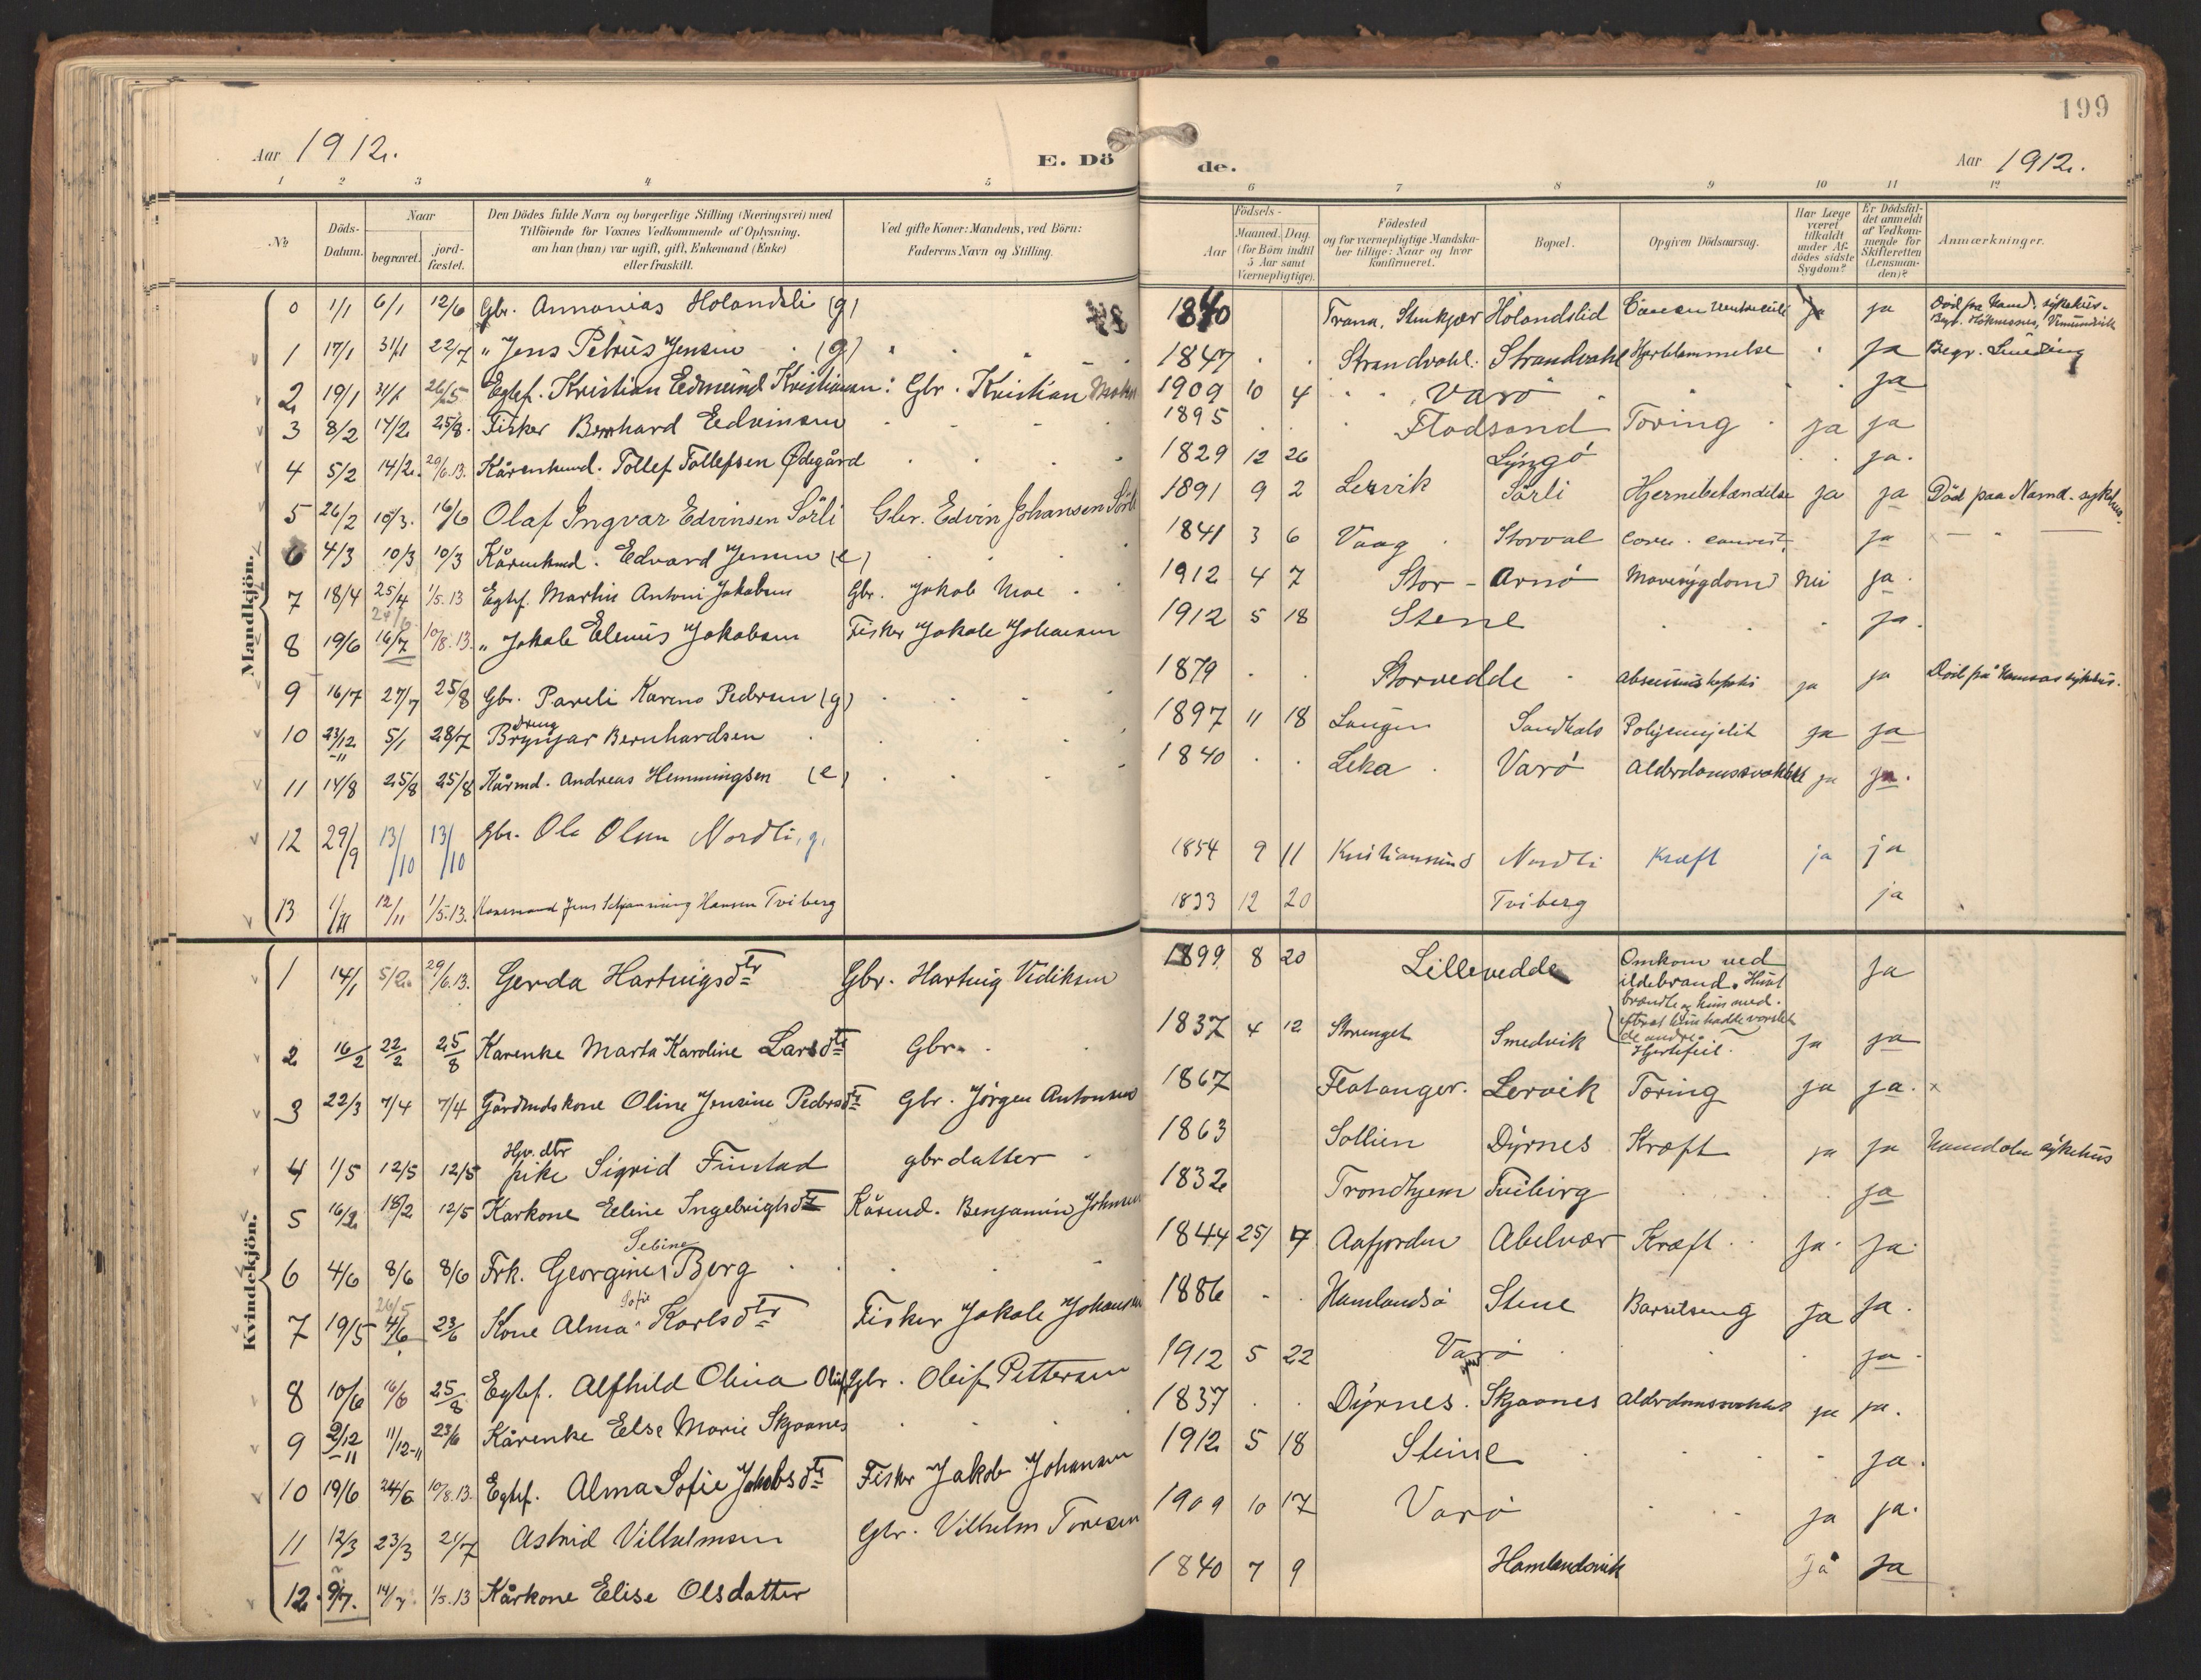 199
Aar 1912.
E. Dö
de.
Aar 1912.
1 2 3 4 5 6 7 8 9 10 11 12
No
Döds-Datum.
Naar
begravet.
jord-fæstet.
Den Dödes fulde Navn og borgerlige Stilling (Næringsvei) med
Tilföiende for Voxnes Vedkommende af Oplysning,
om han (hun) var ugift, gift, Enkemand (Enke)
eller fraskilt.
Ved gifte Koner: Mandens, ved Börn:
Faderens Navn og Stilling.
Födsels-
Aar
Maaned. Dag.
(for Börn indtil
5 Aar samt
Værnepligtige).
Födested
og for værnepligtige Mandska-
ber tillige: Naar og hvor
konfirmeret.
Bopæl.
Opgiven Dödsaarsag.
Har Læge
været
tilkaldt
under Af-
dödes sidste
Sygdom?
Er Dödsfal-
det anmeldt
af Vedkom-
mende for
Skifteretten
(Lensman-
den)?
Anmærkninger.
Mandkjön.
0 1/1 6/1 12/6 Gbr. Annanias Holandsli (g) 1840 Trana, Stenkjær Holandslid Cancer ventriculi ja
1 17/1 31/1 22/7 " Jens Petrus Jensen (g) 1847 Strandvahl. Strandvahl Hjertelammelse ja Begr.
2 19/1 31/1 26/5 Egtef. Kristian Edmund Kristiansen: Gbr. Kristian 1909 10 4 Varö ja
3 8/2 17/2 25/8. Fisker Bernhard Edvinsen 1895 Flodsand Tæring ja ja
4 5/2 14/2. 29/6.13. Kårenkmd. Tollef Tollefsen Ødegård 1829 12 26 Lyngö ja.
5 26/2 10/3. 16/6 Olaf Ingvar Edvinsen Sörli Gbr. Edvin Johansen Sörli 1891 9 2 Lervik Sörli Hjernebetændelse ja ja Död paa Namd. sykehus.
6 4/3 10/3 10/3 Kårenkmd. Edvard Jensen (e) 1841 3 6 Vaag Storval ja
7 18/4 25/4 1/5.13 Egtef. Martin Antoni Jakobsen Gbr. Jakob Moe 1912 4 7 Stor-Arnö Mavesygdom nei ja.
8 19/6 24/6 16/7 10/8.13. " Jakob Elenus Jakobsen Fisker Jakob Johansen 1912 5 18 Stene ja.
9 16/7 27/7 25/8 Gbr. Pareli Kareno Pedersen (g) 1879 Storvedde ja ja Död på Namsos sykehus.
10 23/12-11 5/1 28/7 Dreng Brynjar Bernhardsen 1897 11 18 Laugen Sandkals ja ja
11 14/8 25/8 25/8 Kårmd. Andreas Hemmingsen (e) 1840 Leka Varö Alderdomssvakhet ja ja.
12 29/9 13/10 13/10 Gbr. Ole Olsen Nordli, g. 1854 9 11 Kristiansund Nordli Kræft ja ja
13 1/11 12/11 1/5.13. Jens Schjønning Hansen Tviberg 1833 12 20 Tviberg ja
Kvindekjön.
1 14/1 5/2. 29/6.13. Gerda Hartvigsdtr Gbr. Hartvig Vediksen 1899 8 20 Lillevedde Omkom ved ildebrand. Huset brændte og hun med. efterat hun hadde varslet de andre. ja
2 16/2 22/2 25/8 Karenke Marta Karoline Larsdtr Gbr. 1837 4 12 Storenget Smedvik Hjertefeil. ja ja
3 22/3 7/4 7/4 Gårdmdskone Oline Jensine Pedersdtr Gbr. Jörgen Antonsen 1867 Flatanger. Lervik Tæring ja ja. x
4 1/5 12/5 12/5 Hgr. dtr pike Sigrid Finstad gbr datter 1863 Sollien Dyrnes Kræft ja ja Namdalen sykehus
5 16/2 18/2 12/5 Karkone Eline Ingebrigtsdtr Kårmd. Benjamin Johnsen 1832 Trondhjem Tviberg ja
6 4/6 8/6 8/6 Frk. Georgine Sebine Berg 1844 25/ 7 Aafjorden Abelvær Kræft. ja. ja.
7 19/5 26/5 4/6 23/6 Kone Alma Sofie Karlsdtr Fisker Jakob Johansen 1886 Hamlandsö Stene Barselseng ja ja.
8 10/6 16/6 25/8 Egtef. Alfhild Olina Gbr. Oluf Pettersen 1912 5 22 Varö ja.
9 2/12-11 11/12-11 23/6 Kårenke Else Marie Skjaanes 1837 Dyrnes. Skjaanes Alderdomssvakhet ja ja.
10 19/6 24/6 10/8.13. Egtef. Alma Sofie Jakobsdtr Fisker Jakob Johansen 1912 5 18 Stene ja.
11 12/3 23/3 21/7 Astrid Vilhelmsen Gbr. Vilhelm Toresen 1909 10 17 Varö ja ja.
12. 9/7. 14/7. 1/5.13 Kårkone Elise Olsdatter 1840 7 9 Hamlandsvik ja ja